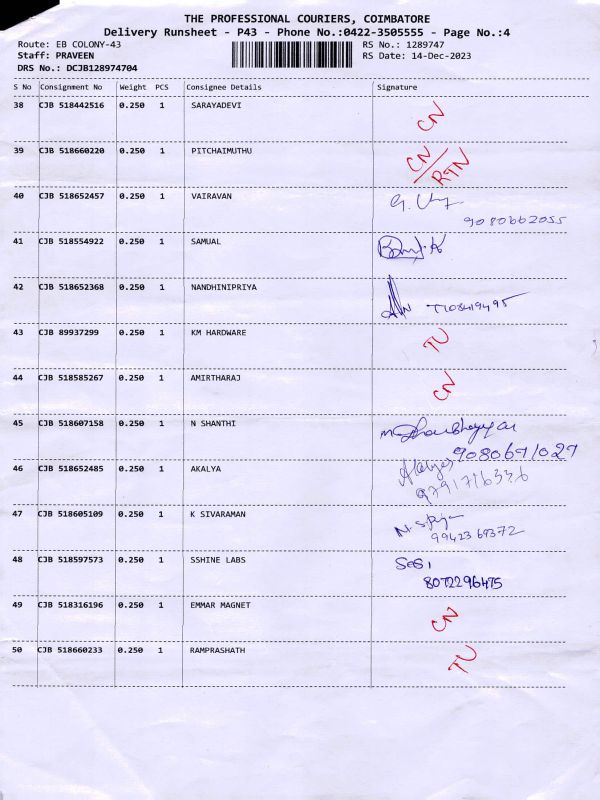 THE PROFESSIONAL COURIERS, COIMBATORE
Delivery Runsheet - P43 - Phone No.:0422-3505555 - Page No.:4
Route: EB COLONY-43 RS No.: 1289747
Staff: PRAVEEN RS Date: 14-Dec-2023
DRS No.: DCJB128974704
S No Consignment No Weight PCS Consignee Details Signature
38 CJB 518442516 0.250 1 SARAYADEVI CN
39 CJB 518660220 0.250 1 PITCHAIMUTHU CN/RTN
40 CJB 518652457 0.250 1 VAIRAVAN
9080662055
41 CJB 518554922 0.250 1 SAMUAL
42 CJB 518652368 0.250 1 NANDHINIPRIYA
43 CJB 89937299 0.250 1 KM HARDWARE TU
44 CJB 518585267 0.250 1 AMIRTHARAJ CN
45 CJB 518607158 0.250 1 N SHANTHI
9080671029
46 CJB 518652485 0.250 1 AKALYA Akalya
9791716336
47 CJB 518605109 0.250 1 K SIVARAMAN
9942369372
48 CJB 518597573 0.250 1 SSHINE LABS Sasi
8072296475
49 CJB 518316196 0.250 1 EMMAR MAGNET CN
50 CJB 518660233 0.250 1 RAMPRASHATH TU